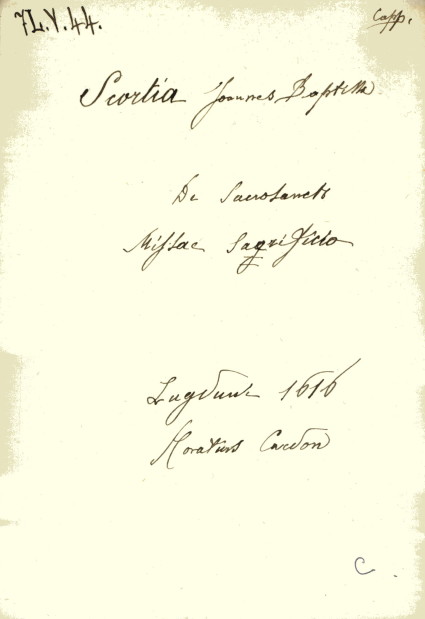 7L.V.44.
Capp.
Scortia Joannes Baptista
De Sacrosancto
Missae Sacrificio
Lugduni 1616
Horatius Cardon
C